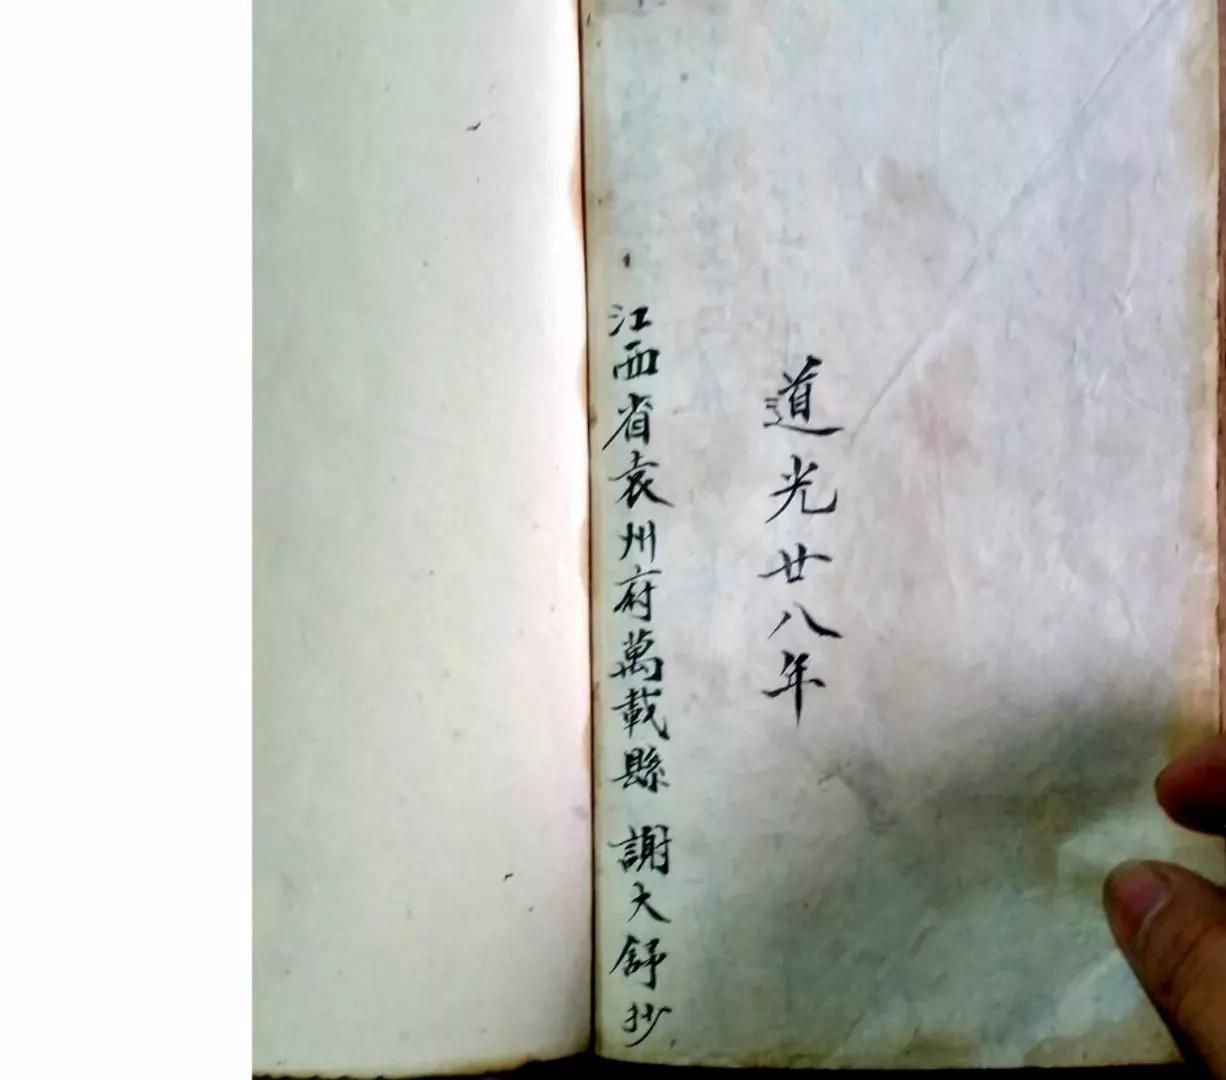 道光廿八年
江西省袁州府萬載縣 謝大舒抄